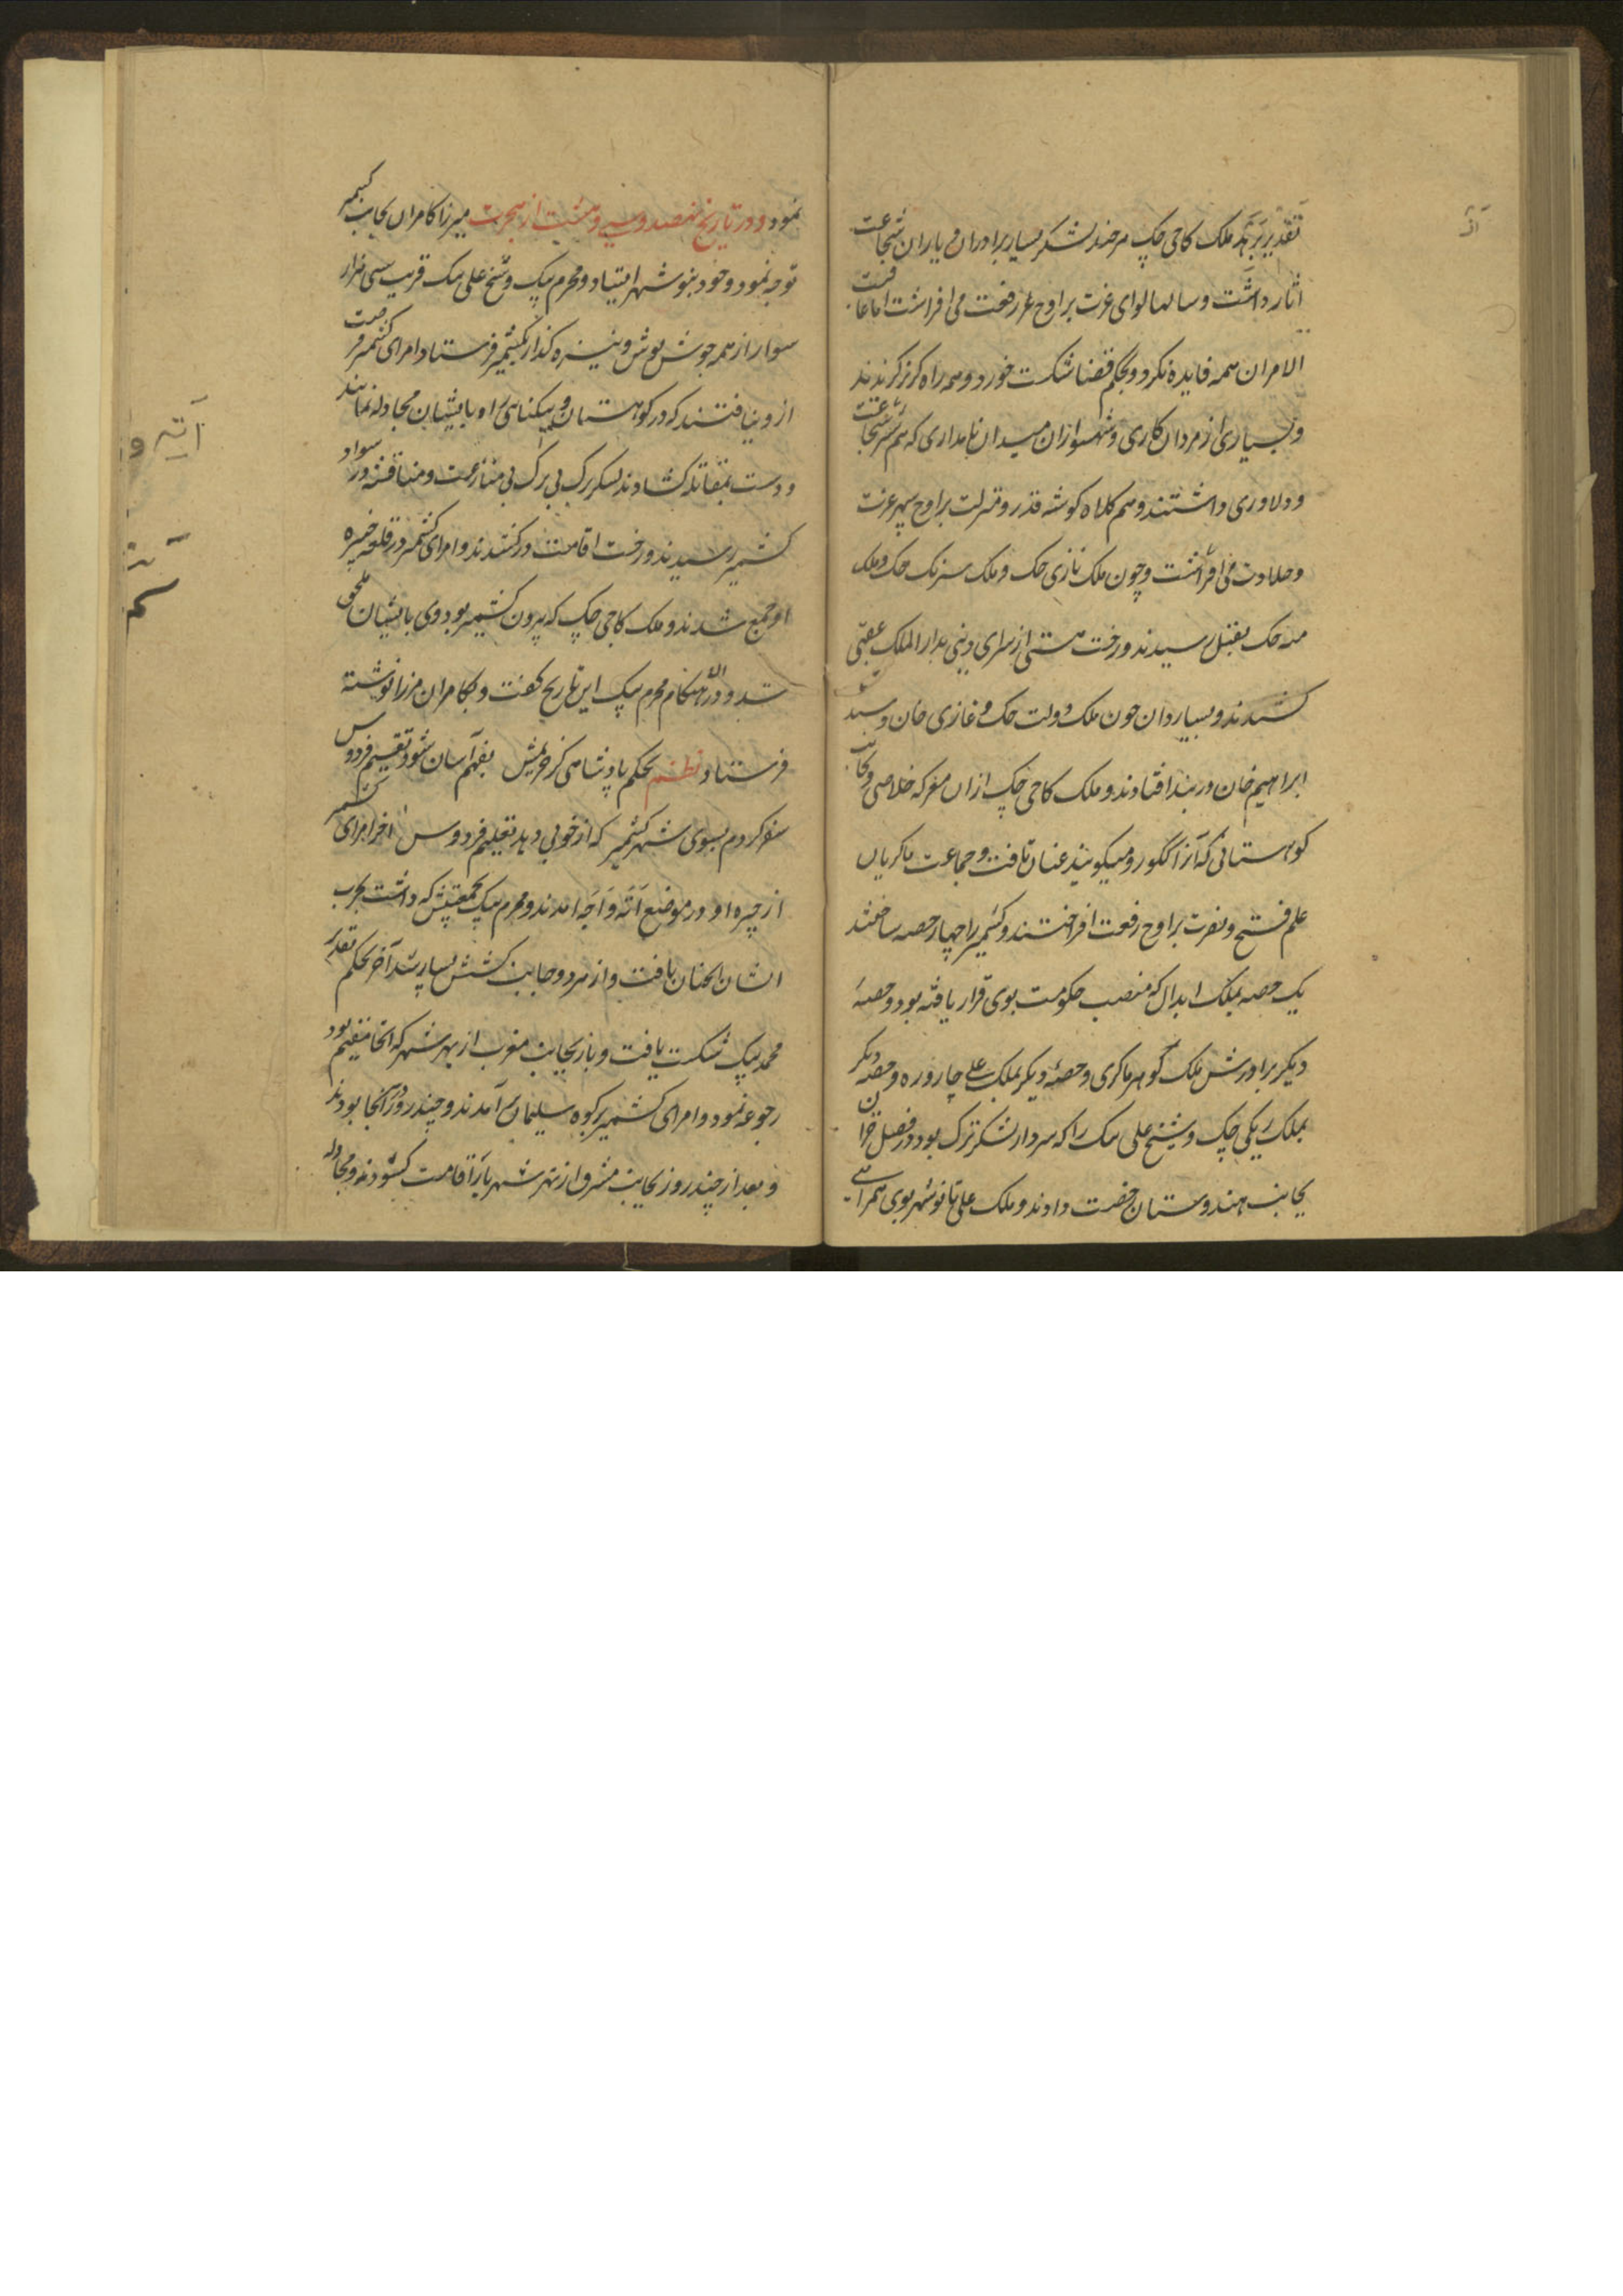 تقدیر بر ملک کاجی چک هرچند لشکر بسیار برادران و یاران شجاعت
اثار داشت و سالها لوای عزت بر اوج رفعت می افراشت اما عاقبت
الامر ان همه فایده نکرد و بحکم قضا شکست خورد و همه راه کریز کزیدند
و بسیاری از مردان کاری و شهسواران میدان نامداری که هم شجاعت
و دلاوری داشتند و هم کلاه کوشه قدر و منزلت بر اوج سپهر عزت
و جلادت می افراشت و چون ملک تازی چک و ملک سرنک چک و ملک
چک بقتل رسیدند و رخت هستی از سرای دنیی بدار الملک عقبی
کشیدند و بسیار دران چون ملک دولت چک و غازی خان و سید
ابراهیم خان در بند افتادند و ملک کاجی چک ازان معرکه خلاصی و بجانب
کوهستانی که آنرا ککور و میکویند عنان تافت و جماعت ماکریان
علم فتح و نصرت بر اوج رفعت افراختند و کشمیر را چهار حصه ساختند
یک حصه بملک ابدال که منصب حکومت بوی قرار یافته بود و حصهٔ
دیکر برادرش ملک کوهر ماکری و حصهٔ دیکر بملک علی چاروره و حصهٔ دیکر
بملک ریکی چک و شیخ علی بیک را که سردار لشکر ترک بود در فصل خزان
بجانب هندوستان رخصت دادند و ملک علی تا نوشهر بوی همراهی
نمود و در تاریخ نهصد و سی و هشت از هجرت میرزا کامران بجانب کشمیر
توجه نمود و خود بنوشهر ایستاد و محرم بیک و شیخ علی بیک قریب سی هزار
سوار از همه جوشن پوش و نیزه گذار بکشمیر فرستاد امرای کشمیر فرصت
ازو نیافتند که در کوهستان و تنکناهی راه بایشان مجادله نمایند
و دست بمقاتله کشادند لشکر ترک بی منازعت و مناقشه در سواد
کشمیر رسیدند و رخت اقامت درکشیدند و امرای کشمیر در قلعه چیره
او جمع شدند و ملک کاجی چک که بیرون کشمیر بود وی بایشان ملحق
شد و در ان هنکام محرم بیک این تاریخ کفت و بکامران مرزا نوشته
فرستاد نظم بحکم پادشاهی کز خویش بفهم آسان شود تقسیم فردوس
سفر کردم بسوی شهر کشمیر که از خوبی دهد تعلیم فردوس اخر امرای کشمیر
از چیره او در موضع اته واجه امدند و محرم بیک بجمعیتش که داشت بحرب
ایشان عنان تافت و از هر دو جانب کشش بسیار شد آخر بحکم تقدیر
محمد بیک شکست یافت و باز بجانب مغرب از نهر شهر که انجا مقیم بود
رجوعه نمود و امرای کشمیر بر کوه سلیمان آمدند و چند روز آنجا بودند
و بعد از چند روز بجانب مشرق از نهر شهر بار اقامت کشودند و مجادله